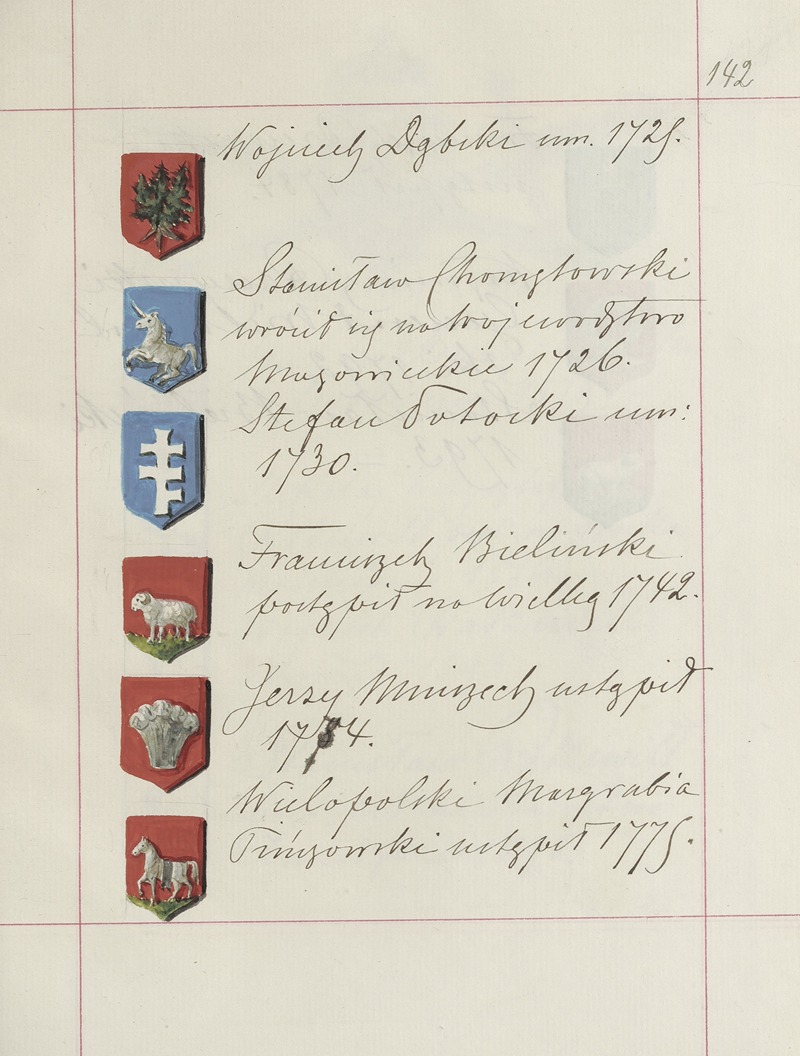 142
Wojciech Dąbski um. 1725.
Stanisław Chomętowski
wrócił się na Województwo
Mazowieckie 1726.
Stefan Potocki um:
1730.
Franciszek Bieliński
postąpił na Wielką 1742.
Jerzy Mniszech ustąpił
4.
Wielopolski Margrabia
Pińczowski ustąpił 1775.